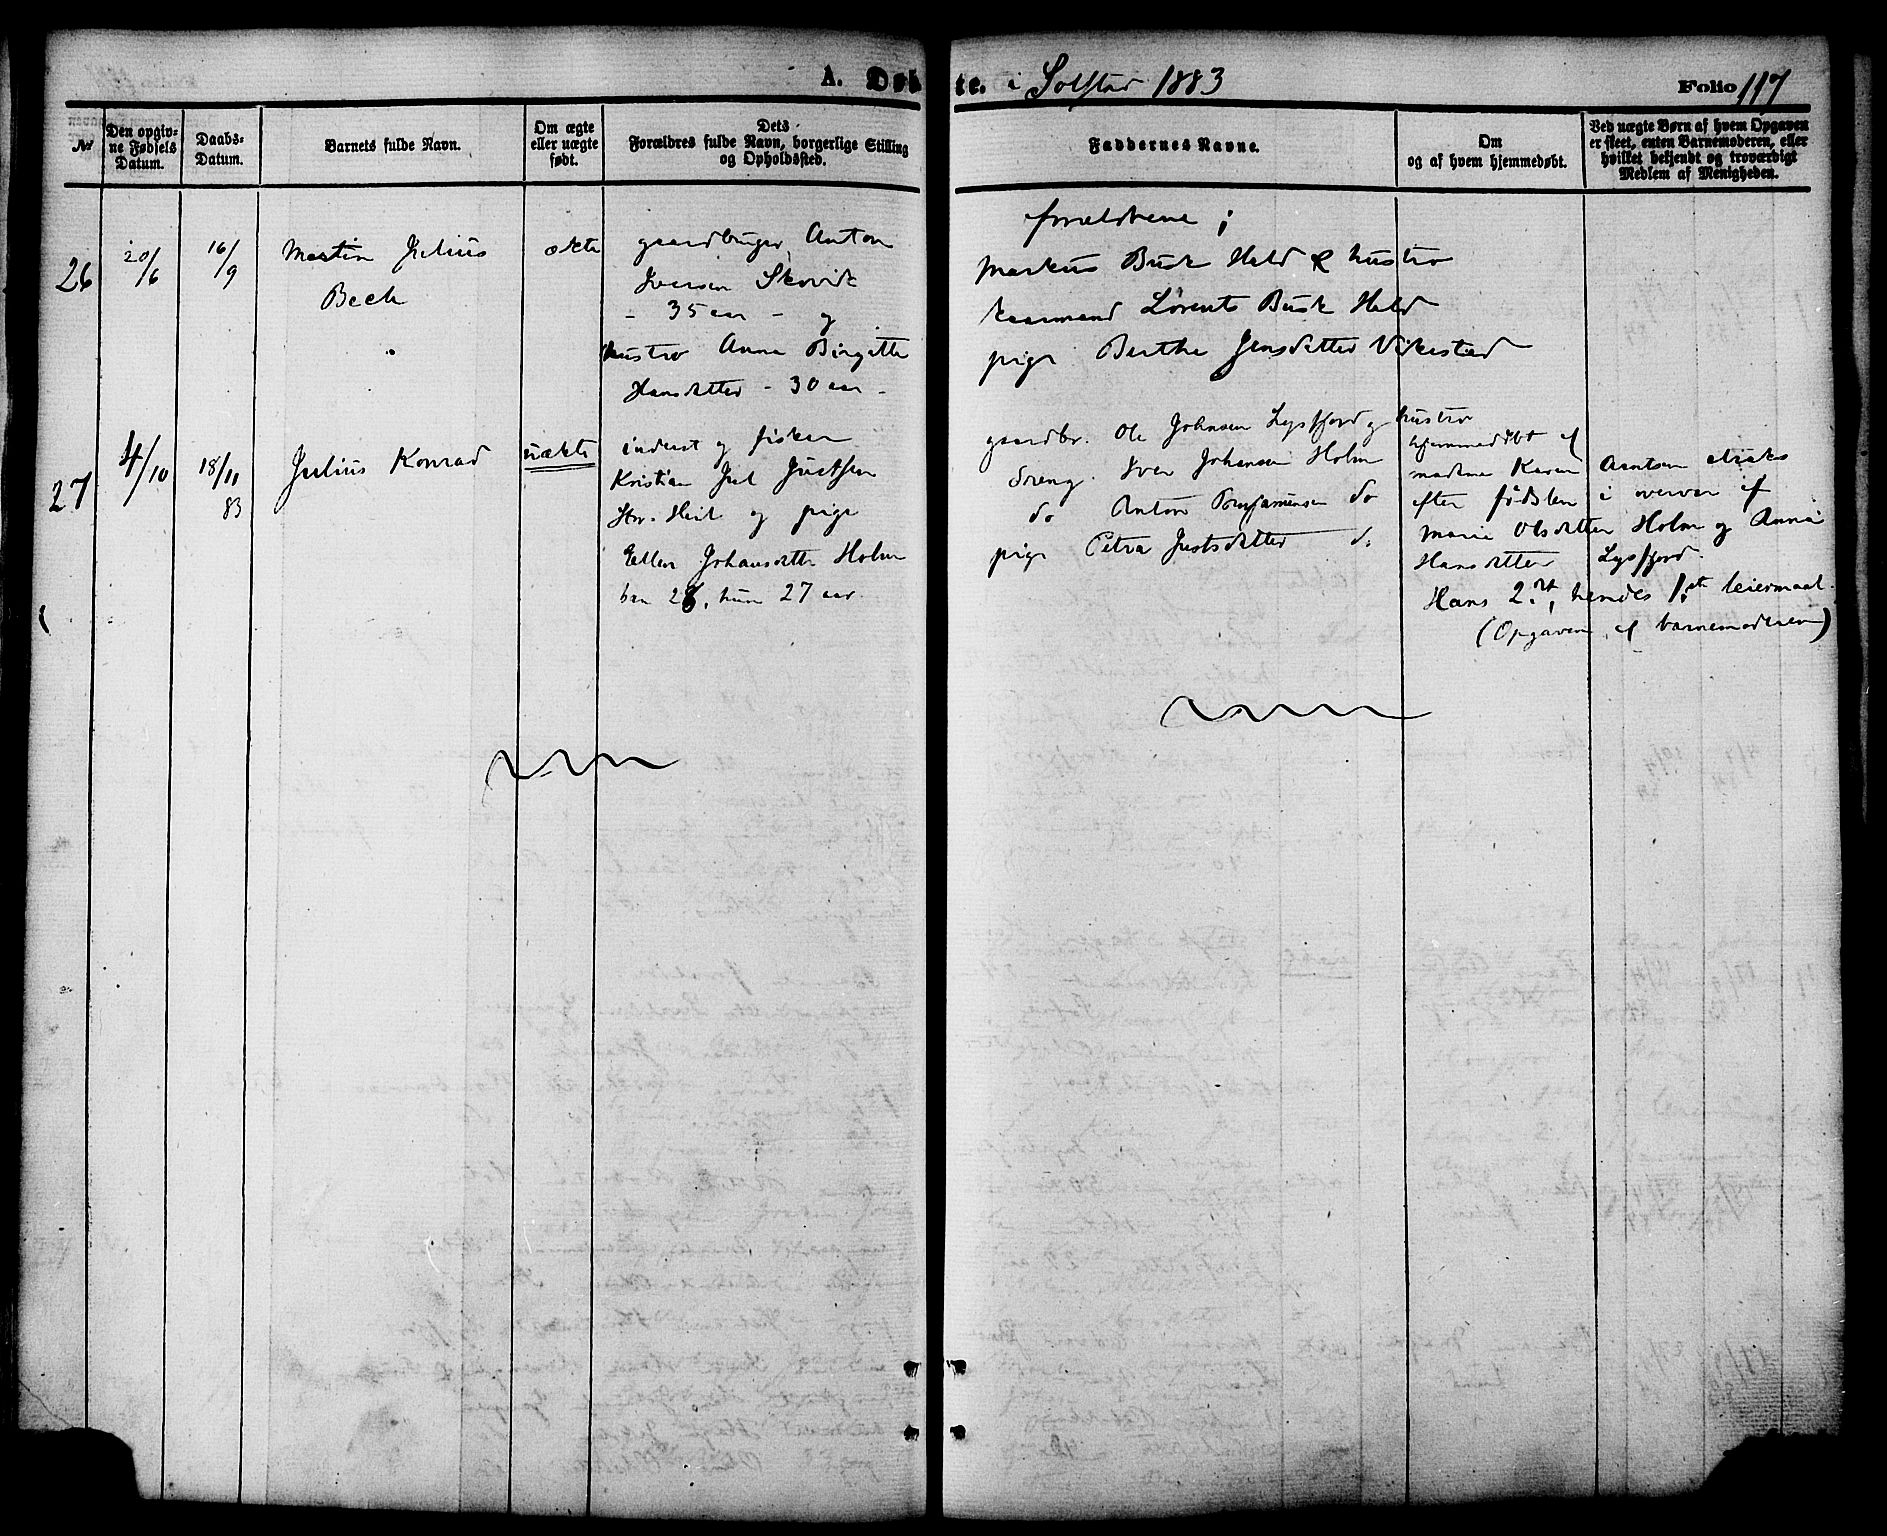 A. Døb
te. i Solstad 1883
Folio 117
No
Den opgiv-
ne Fødsels
Datum.
Daabs-
Datum.
Barnets fulde Navn.
Om ægte
eller uægte
født.
Dets
Forældres fulde Navn, borgerlige Stilling
og Opholdssted.
Faddernes Navne.
Om
og af hvem hjemmedøbt.
Ved uægte Børn af hvem Opgaven
er skeet, enten Barnemoderen, eller
hvilket bekjendt og troværdigt
Medlem af Menigheden.
26
20/6
16/9
Martin Julius
Beck
ækte
gaardbruger Anton
Iversen Skovik
- 35 aar - og
hustro Anna Birgitte
Hansdatter - 30 aar -
forældrene ;
Markus Busk Held & hustro
kaarmand Lorents Busk Held
pige Berthe Jensdatter Vikestad
27
4/10
18/11
83
Julius Konrad
uækte
inderst og fisker
Kristian Juel Justsen
og pige
Ellen Johansdatter Holm
han 28, hun 27 aar.
gaardbr. Ole Johnsen Lysfjord og hustro
dreng. Iver Johansen Holm
do Anton Benjaminsen do
pige Petra Justsdatter do
hjemmedøbt af
madame Karen Arntsen straks
efter fødslen i overvær af
Marie Olsdatter Holm og Anna
Hansdatter Lysfjord.
Hans 2det, hendes 1ste leiermaal.
(Opgaven af barnemoderen)